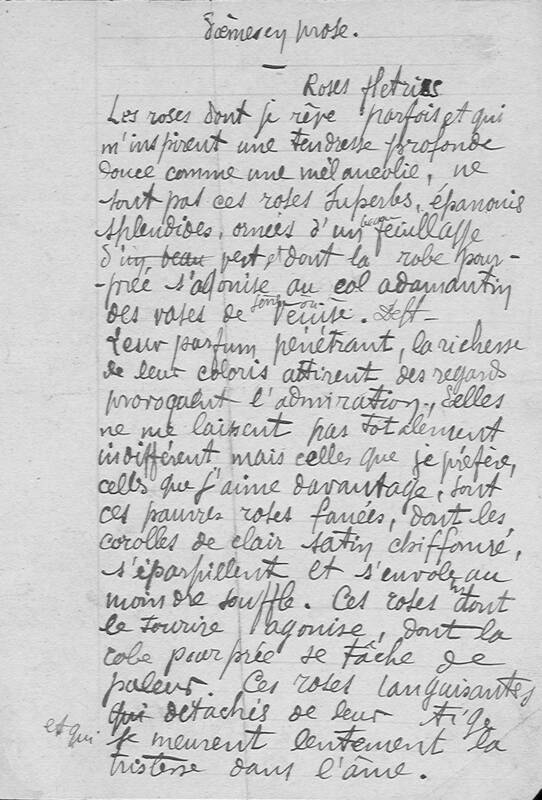 Poèmes en prose.
Roses fletries
Les roses dont je rêve parfois et qui
m'inspirent une tendresse profonde
douce comme une mélancolie, ne
sont pas ces roses superbes, épanouis
splendides, ornées d'un beau feuillage
d'un beau vert et dont la robe pour-
-prée s'agonise au col adamantin
des vases de Venise.
Leur parfum pénétrant, la richesse
de leur coloris attirent des regards
provoquent l'admiration, Elles
ne me laissent pas totalement
indifférent mais celles que je préfère,
celles que j'aime davantage, sont
ces pauvres roses fanées, dont les
corolles de clair satin chiffonné,
s'éparpillent et s'envolent au
moindre souffle. Ces roses dont
le sourire agonise, dont la
robe pourprée se tâche de
paleur. Ces roses languisantes
qui detachés de leur tige
et qui se meurent lentement la
tristesse dans l'âme.